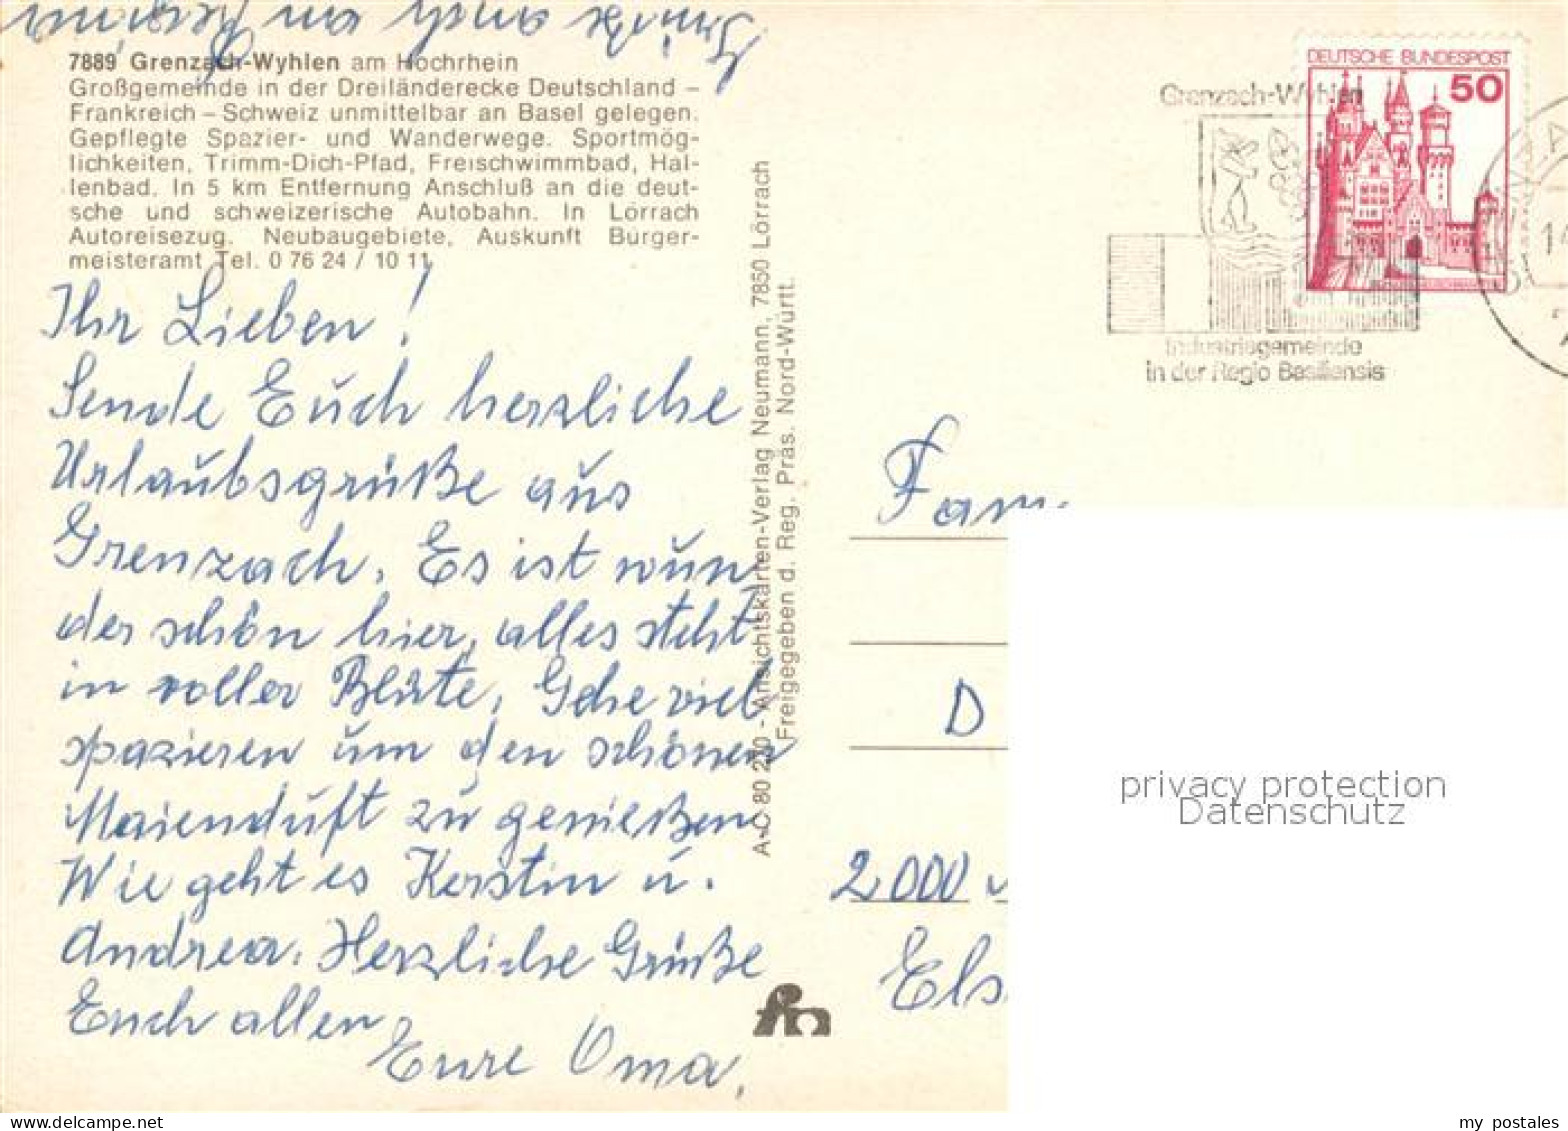 Grüße auch an Regina
7889 Grenzach-Wyhlen am Hochrhein
Großgemeinde in der Dreiländerecke Deutschland –
Frankreich – Schweiz unmittelbar an Basel gelegen.
Gepflegte Spazier- und Wanderwege. Sportmög-
lichkeiten, Trimm-Dich-Pfad, Freischwimmbad, Hal-
lenbad. In 5 km Entfernung Anschluß an die deut-
sche und schweizerische Autobahn. In Lörrach
Autoreisezug. Neubaugebiete, Auskunft Bürger-
meisteramt Tel. 0 76 24 / 10 11
Ihr Lieben!
Sende Euch herzliche
Urlaubsgrüße aus
Grenzach. Es ist wun
der schön hier, alles steht
in voller Blüte, Gehe viel
spazieren um den schönen
Maienduft zu genießen.
Wie geht es Kerstin u.
Andrea. Herzliche Grüße
Euch allen
Eure Oma.
A-C 80 270 - Ansichtskarten-Verlag Neumann, 7850 Lörrach
Freigegeben d. Reg. Präs. Nord-Württ.
fn
DEUTSCHE BUNDESPOST
50
Grenzach-Wyhlen
Industriegemeinde
in der Regio Basiliensis
Fam
D
2000
Els
privacy protection
Datenschutz
my postales